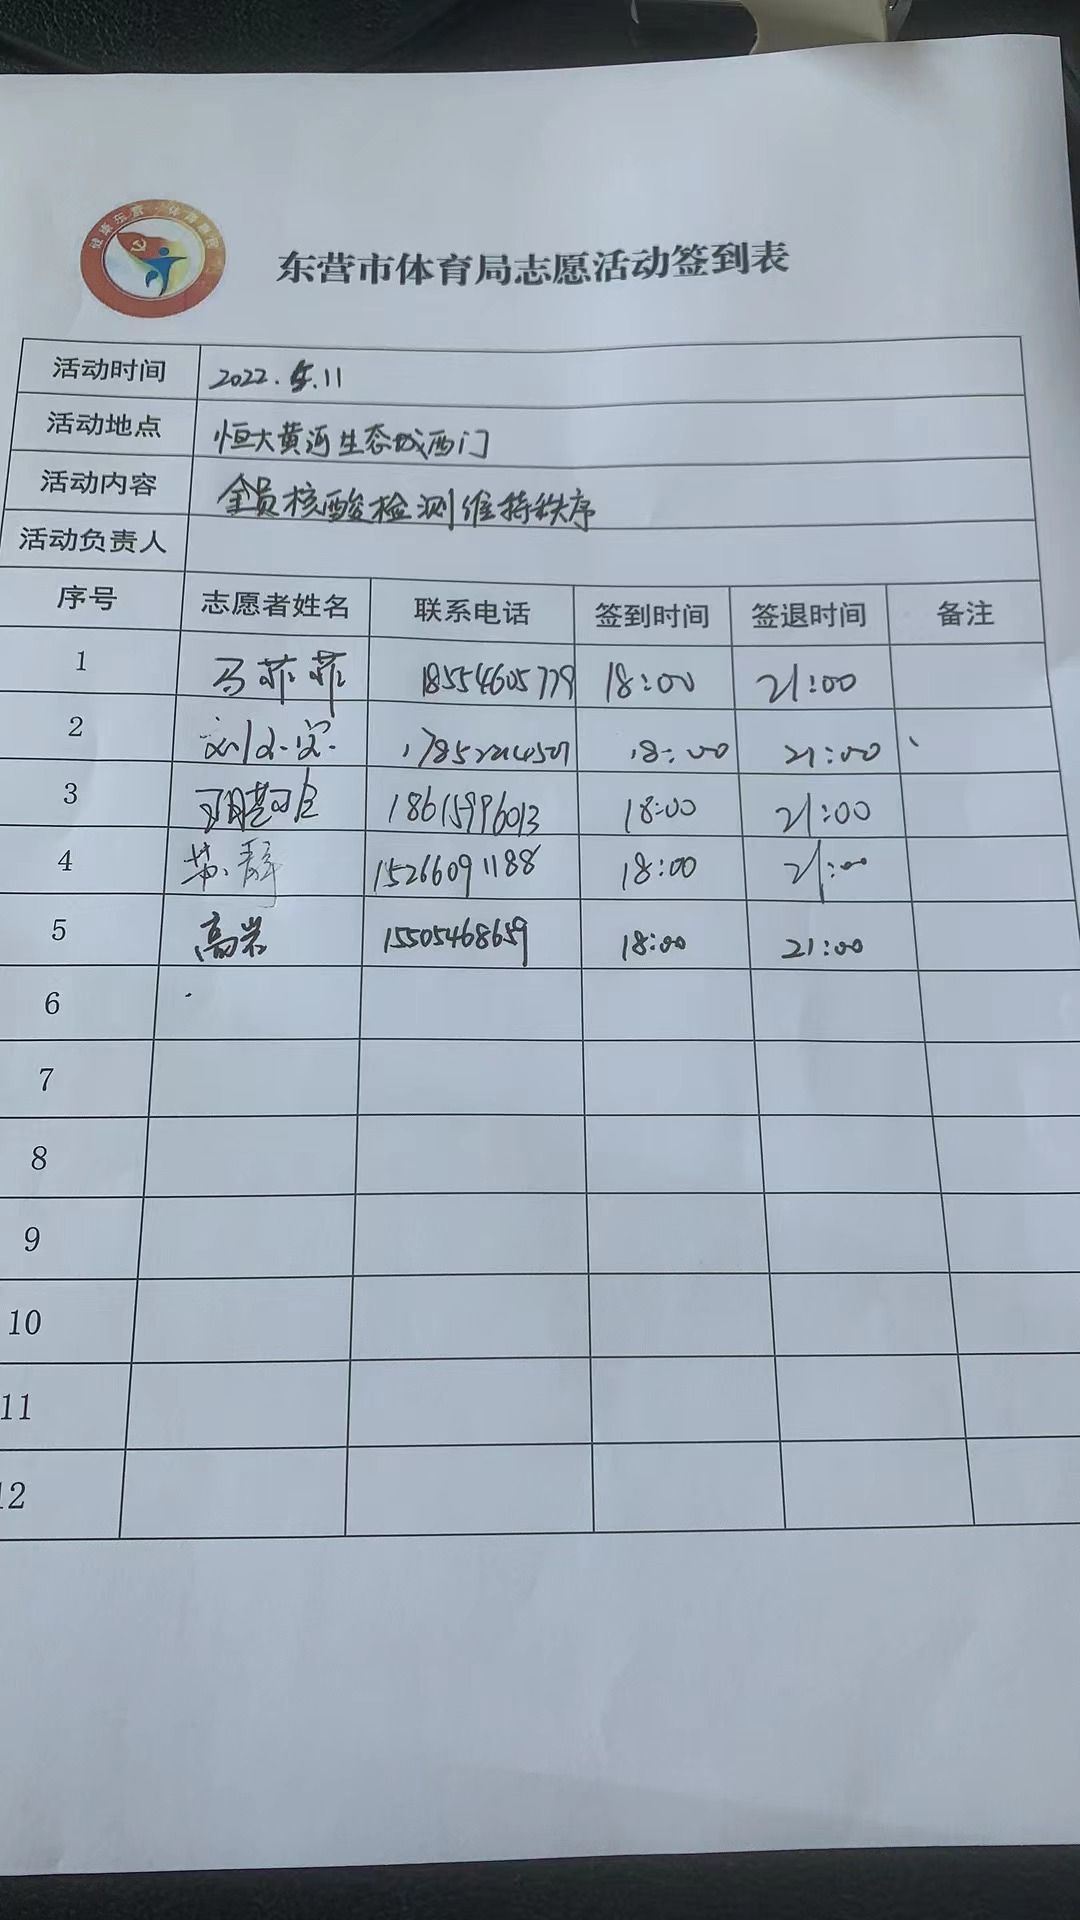 健康东营·体育惠民
东营市体育局志愿活动签到表
活动时间 2022.5.11
活动地点 恒大黄河生态城西门
活动内容 全员核酸检测维持秩序
活动负责人
序号 志愿者姓名 联系电话 签到时间 签退时间 备注
1 马菲菲 18554605779 18:00 21:00
2 18:00 21:00
3 18615996013 18:00 21:00
4 苏静 15266091188 18:00 21:00
5 高岩 15505468659 18:00 21:00
6
7
8
9
10
11
12